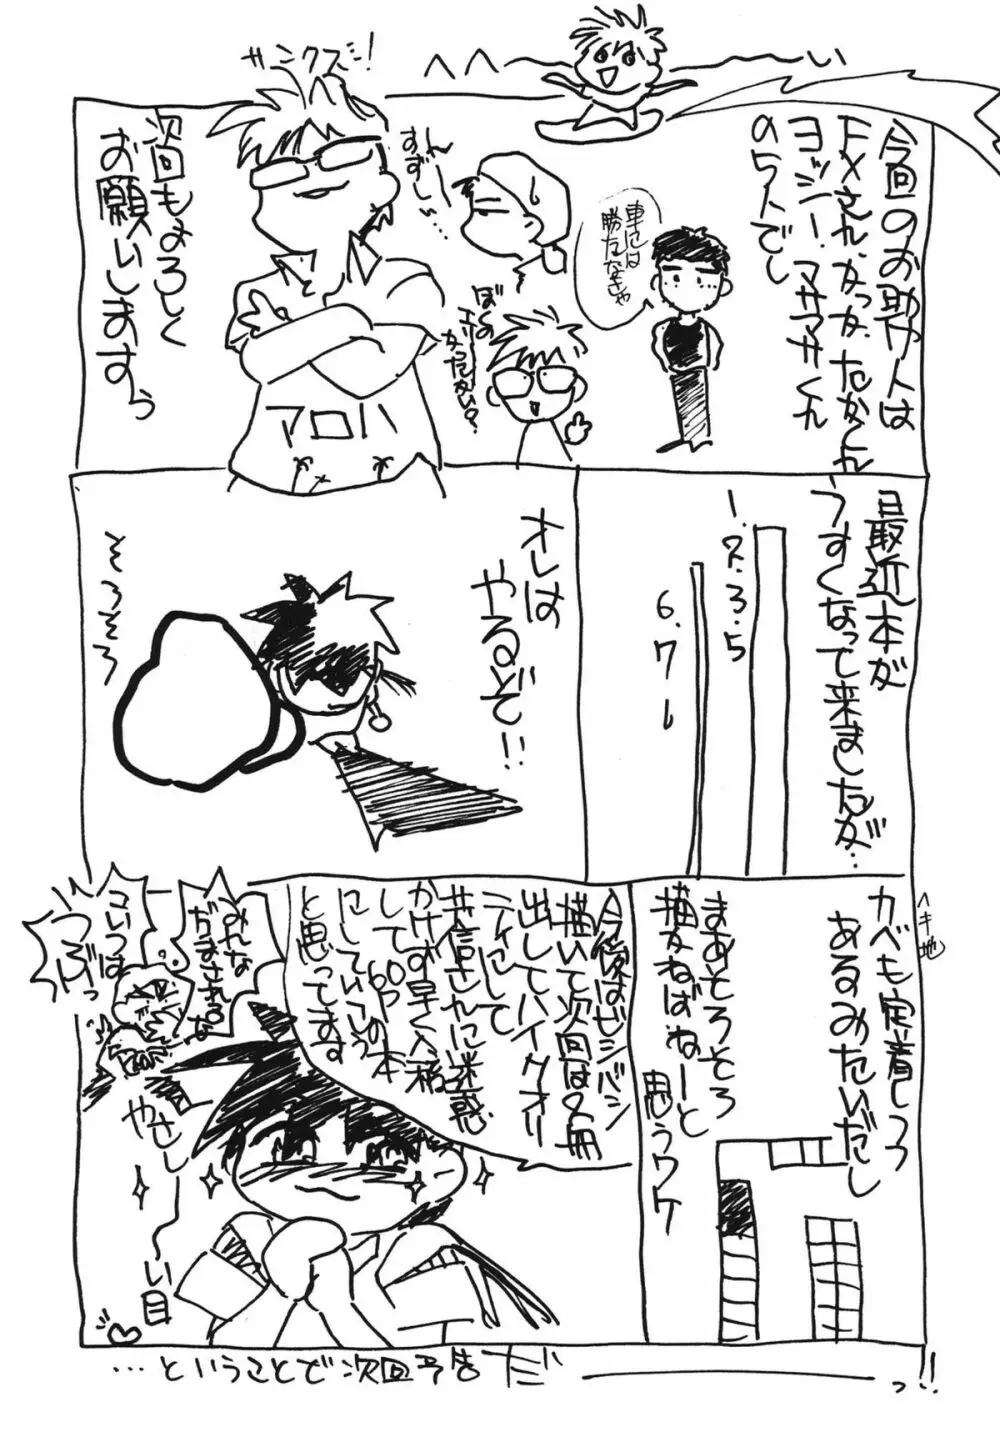 サンクスミ!
へへ
〜い
今回のお助け人は
FXさん、かっかたかくん
ヨッシー、ママサくん
の5人でし
車には
勝たなきゃ
んー
すずしい…
ぼくの
次回もよろしく
お願いしますぅ
アロハ
最近本が
うすくなって来ましたが…
1.2.3.5
6.7〜
オレは
やるぞ!!
そろそろ
カベも定着しろ
あるみたいだし
ヘキ地
まあそろそろ
描かねばねーと
思うワケ
今後はビシバシ
描いて次回は2冊
出してハイクオリ
ティにして
共信さんに迷惑
かけず早く入稿
して60Pの本
にしていこう
と思ってます
みんな
だまされるな
コイツは
うぶっ
やさし〜い目
…ということで次回予告だ――っ!!